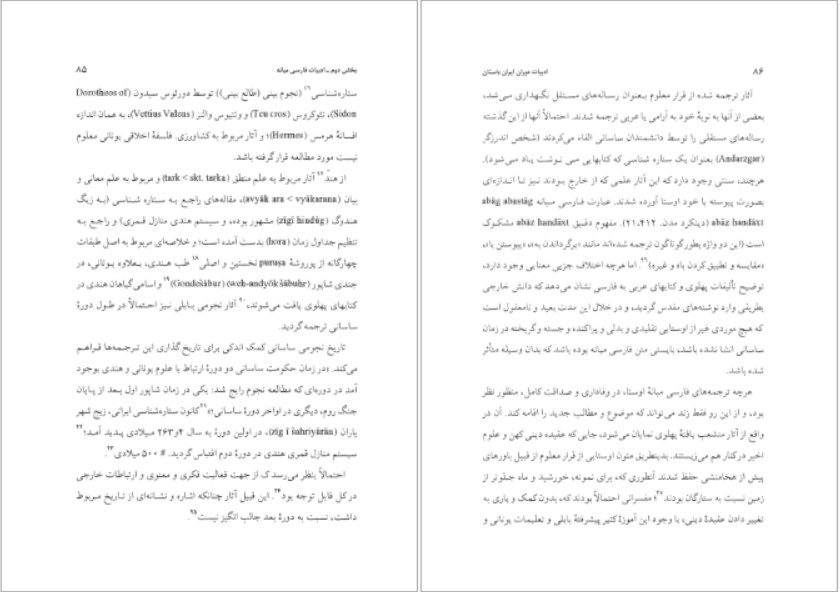 بخش دوم ـ ادبیات فارسی میانه ۸۵
ستاره‌شناسی۱۶ (نجوم بینی (طالع بینی)) توسط دورئوس سیدون (Dorotheos of
Sidon)، تئوکروس (Teu cros) و وتیوس والنز (Vettius Valens)، به همان اندازه
افسانهٔ هرمس (Hermes)؛ و آثار مربوط به کشاورزی. فلسفهٔ اخلاقی یونانی معلوم
نیست مورد مطالعه قرار گرفته باشد.
از هند۱۷ آثار مربوط به علم منطق (tark < skt. tarka) و مربوط به علم معانی و
بیان (avyāk ara < vyākarana)، مقاله‌های راجع به ستاره شناسی (به زیگ
هندوگ (zīgī hindūg) مشهور بوده، و سیستم هندی منازل قمری) و راجع به
تنظیم جداول زمان (hora) بدست آمده است؛ و خلاصه‌ای مربوط به اصل طبقات
چهارگانه از پوروشهٔ puruṣa نخستین و اصلی۱۸ طب هندی، بعلاوه یونانی، در
جندی شاپور (weh-andyōk šābuhr) (Gondešābur)۱۹ و اسامی گیاهان هندی در
کتابهای پهلوی یافت می‌شوند،۲۰ آثار نجومی بابلی نیز احتمالاً در طول دورهٔ
ساسانی ترجمه گردید.
تاریخ نجومی ساسانی کمک اندکی برای تاریخ گذاری این ترجمه‌ها فراهم
می‌کند. «در زمان حکومت ساسانی دو دورهٔ ارتباط با علوم یونانی و هندی بوجود
آمد در دوره‌ای که مطالعه نجوم رایج شد: یکی در زمان شاپور اول بعد از پایان
جنگ روم، دیگری در اواخر دورهٔ ساسانی»۲۱ کانون ستاره‌شناسی ایرانی، زیج شهر
یاران (zīg ī šahriyārān)، در اولین دورهٔ به سال ۴و۲۶۳ میلادی پدید آمد؛۲۲
سیستم منازل قمری هندی در دورهٔ دوم اقتباس گردید. # ۵۰۰ میلادی۲۳
احتمالاً بنظر می‌رسد که از جهت فعالیت فکری و معنوی و ارتباطات خارجی
در کل قابل توجه بود۲۴. این قبیل آثار چنانکه اشاره و نشانه‌ای از تاریخ مربوط
داشت، نسبت به دورهٔ بعد جالب انگیز نیست۲۵.
۸۶ ادبیات دوران ایران باستان
آثار ترجمه شده از قرار معلوم بعنوان رساله‌های مستقل نگهداری می‌شد،
بعضی از آنها به نوبهٔ خود به آرامی یا عربی ترجمه شدند. احتمالاً آنها از این گذشته
رساله‌های مستقلی را توسط دانشمندان ساسانی القاء می‌کردند (شخص اندرزگر
(Andarzgar) بعنوان یک ستاره شناسی که کتابهایی می نوشت یاد می‌شود).
هرچند، سنتی وجود دارد که این آثار علمی که از خارج بودند نیز تا اندازه‌ای
بصورت پیوسته با خود اوستا آورده شدند. عبارت فارسی میانه abāg abastāg
abāz handāxt (دینکرد مدن، ۲۱،۴۱۲). مفهوم دقیق abāz handāxt مشکوک
است (این دو واژه بطور گوناگون ترجمه شده‌اند مانند «برگرداندن به»، «پیوستن با»،
«مقایسه و تطبیق کردن با» و غیره)۲۶. اما هرچه اختلاف جزیی معنایی وجود دارد،
توضیح تألیفات پهلوی و کتابهای عربی به فارسی نشان می‌دهد که دانش خارجی
بطریقی وارد نوشته‌های مقدس گردید، و در خلال این مدت بعید و نامعقول است
که هیچ موردی غیر از اوستایی تقلیدی و بدلی و پراکنده و جسته و گریخته در زمان
ساسانی انشا نشده باشد، بایستی متن فارسی میانه بوده باشد که بدان وسیله متأثر
شده باشد.
هرچه ترجمه‌های فارسی میانهٔ اوستا، در وفاداری و صداقت کامل، منظور نظر
بود، و از این رو فقط زند می‌تواند که موضوع و مطالب جدید را اقامه کند. آن در
واقع از آثار منشعب یافتهٔ پهلوی نمایان می‌شود، جایی که عقیده دینی کهن و علوم
اخیر در کنار هم می‌زیستند. بدینطریق متون اوستایی از قرار معلوم از قبیل باورهای
پیش از هخامنشی حفظ شدند آنطوری که، برای نمونه، خورشید و ماه جلوتر از
زمین نسبت به ستارگان بودند۲۷؛ مفسرانی احتمالاً بودند که، بدون کمک و یاری به
تغییر دادن عقیدهٔ دینی، با وجود این آموزهٔ کثیر پیشرفتهٔ بابلی و تعلیمات یونانی و